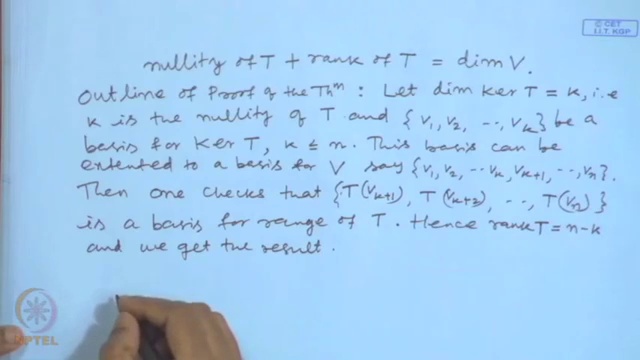 © CET
I.I.T. KGP
nullity of T + rank of T = dim V.
Outline of Proof of the Thm : Let dim Ker T = k, i.e
k is the nullity of T and {v1, v2, ..., vk} be a
basis for Ker T, k ≤ n. This basis can be
extented to a basis for V say {v1, v2, ... vk, vk+1, ..., vn}.
Then one checks that {T(vk+1), T(vk+2), ..., T(vn)}
is a basis for range of T. Hence rank T = n-k
and we get the result.
NPTEL